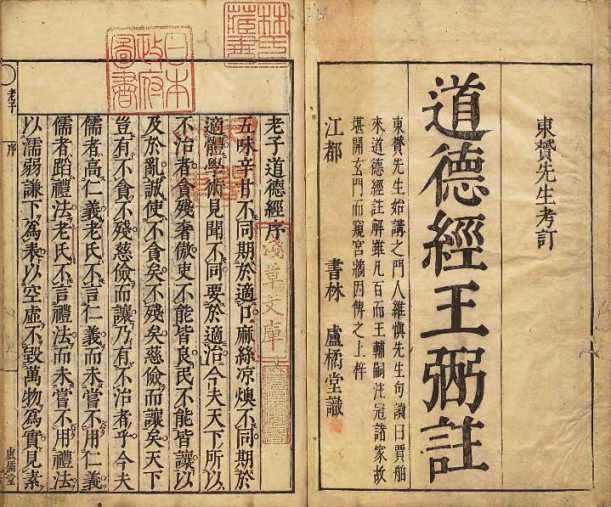 東贇先生考訂
道德經王弼註
東贇先生始講之門人維惧先生句讀曰賈舶
來道德經註解雖凡百而王輔嗣注冠諸家故
堪開玄門而窺宮牆因傳之上梓
江都 書林 盧橘堂識
林氏藏書
日本政府圖書
淺草文庫
老子道德經序
五味辛甘不同期於適口麻絲涼燠不同期於
適體學術見聞不同要於適治今夫天下所以
不治者貪殘奢傲吏不能皆良民不能皆讓以
及於亂誠使不貪矣不殘矣慈儉而讓矣天下
豈有不貪不殘慈儉而讓乃有不治者乎今夫
儒者高仁義老氏不言仁義而未嘗不用仁義
儒者蹈禮法老氏不言禮法而未嘗不用禮法
以濡弱謙下為表以空虛不毀萬物為實見素
老子 序 盧橘堂